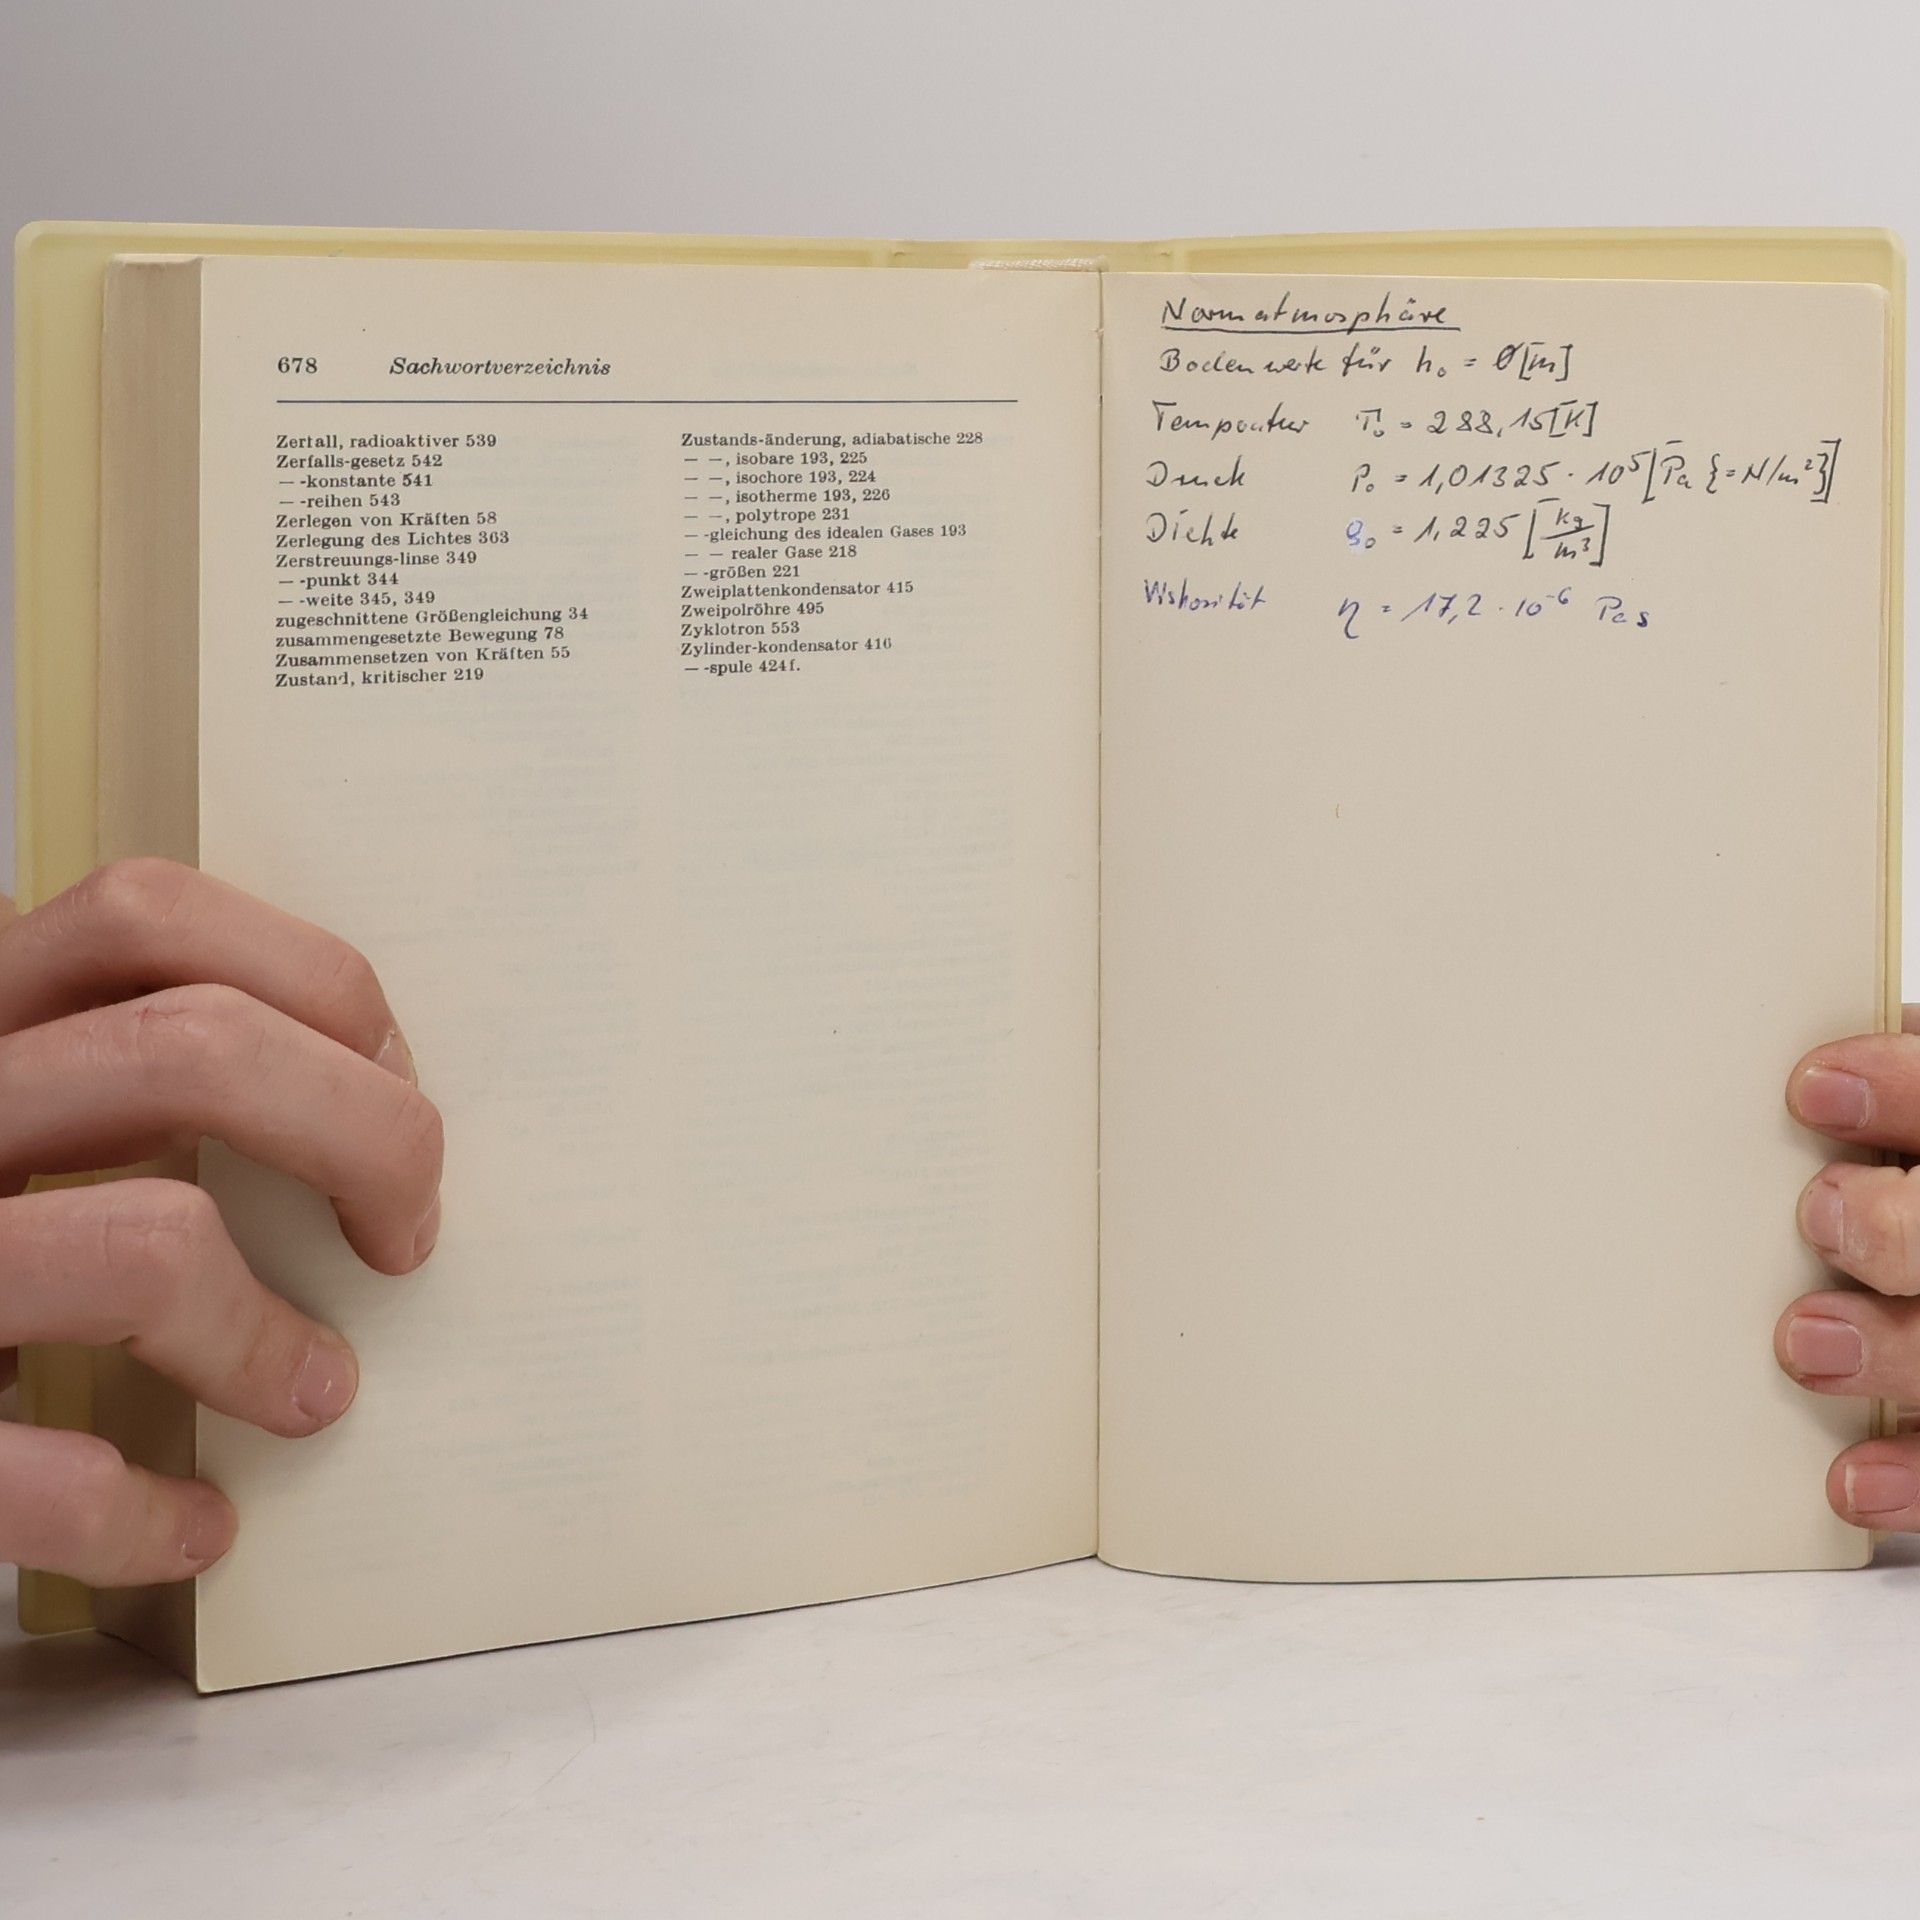 678 Sachwortverzeichnis
Zerfall, radioaktiver 539
Zerfalls-gesetz 542
— -konstante 541
— -reihen 543
Zerlegen von Kräften 58
Zerlegung des Lichtes 363
Zerstreuungs-linse 349
— -punkt 344
— -weite 345, 349
zugeschnittene Größengleichung 34
zusammengesetzte Bewegung 78
Zusammensetzen von Kräften 55
Zustand, kritischer 219
Zustands-änderung, adiabatische 228
— —, isobare 193, 225
— —, isochore 193, 224
— —, isotherme 193, 226
— —, polytrope 231
— -gleichung des idealen Gases 193
— — realer Gase 218
— -größen 221
Zweiplattenkondensator 415
Zweipolröhre 495
Zyklotron 553
Zylinder-kondensator 416
— -spule 424f.
Normatmosphäre
Bodenwerte für h₀ = 0 [m]
Temperatur T₀ = 288,15 [K]
Druck P₀ = 1,01325 · 10⁵ [Pa {= N/m²}]
Dichte ϱ₀ = 1,225 [kg/m³]
Viskosität η = 17,2 · 10⁻⁶ Pas